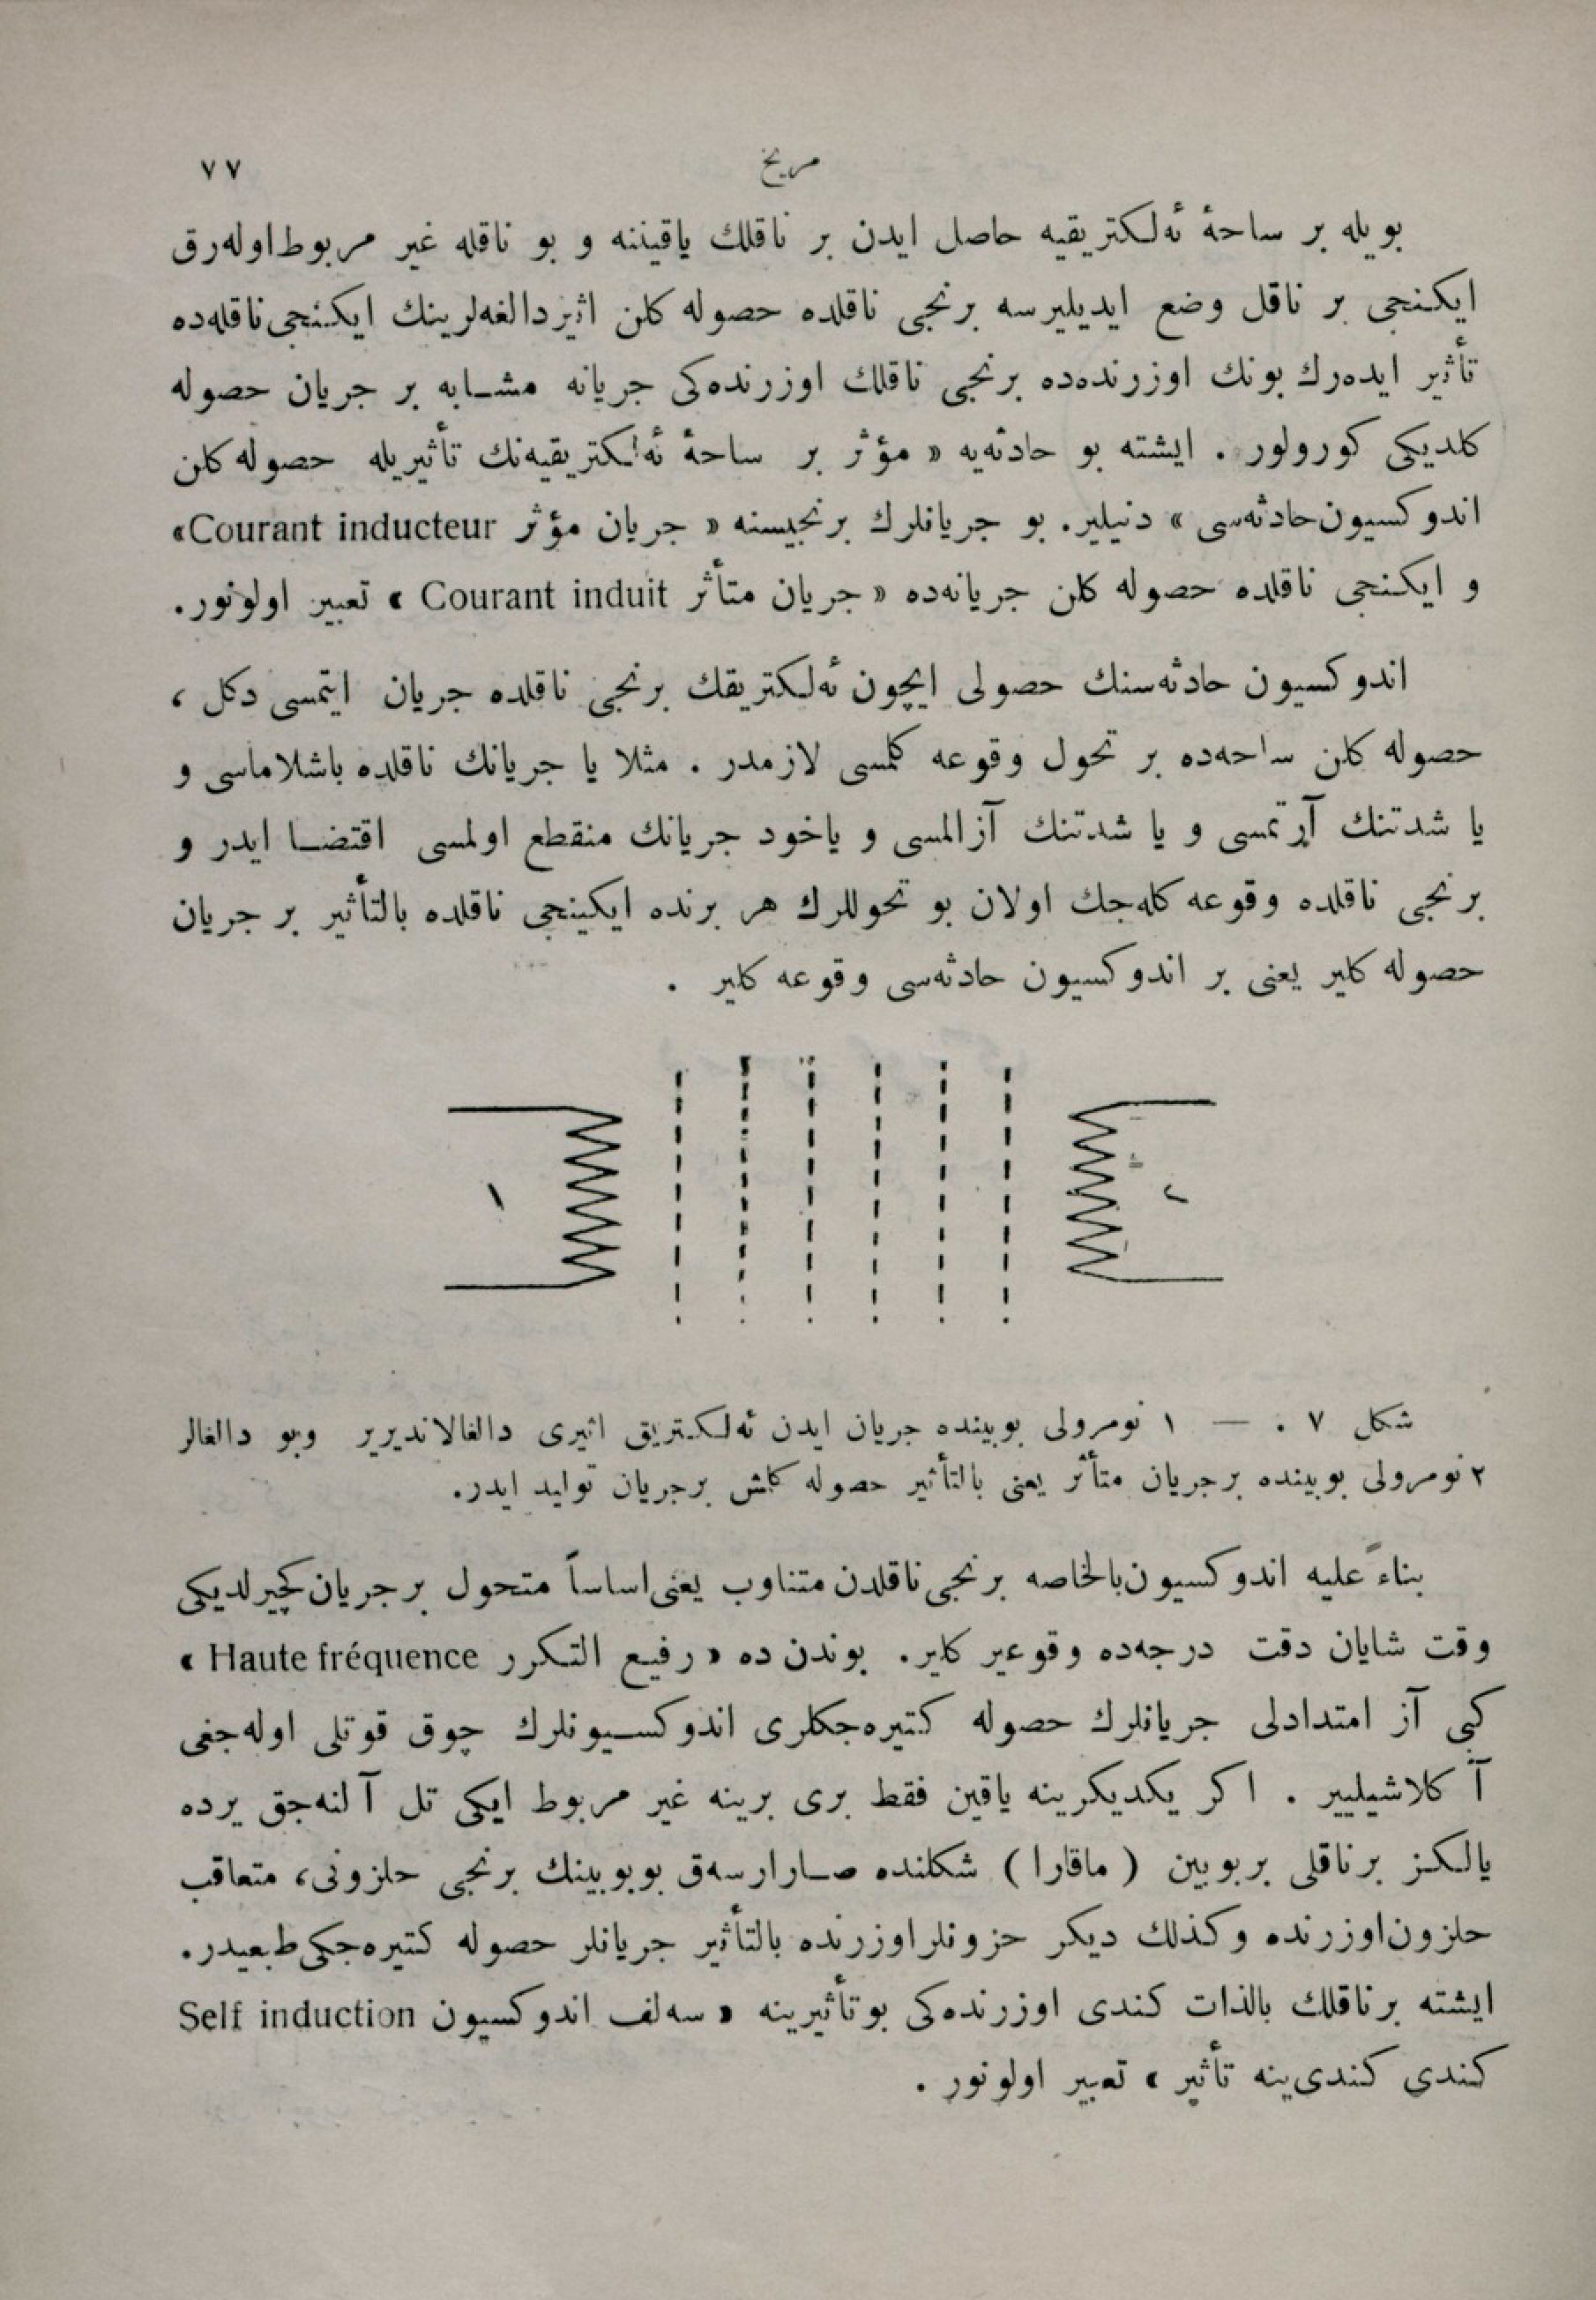 مریخ
٧٧
بویله بر ساحهٔ ئه‌لكتریقیه حاصل ایدن بر ناقلك یاقیننه و بو ناقله غیر مربوط اوله‌رق
ایكنجی بر ناقل وضع ایدیلیرسه برنجی ناقلده حصوله كلن اثیر دالغه‌لرینك ایكنجی ناقله‌ده
تأثیر ایده‌رك بونك اوزرنده‌ده برنجی ناقلك اوزرنده‌كی جریانه مشابه بر جریان حصوله
كلدیكی كورولور . ایشته بو حادثه‌یه « مؤثر بر ساحهٔ ئه‌لكتریقیه‌نك تأثیریله حصوله كلن
اندوكسیون حادثه‌سی » دنیلیر. بو جریانلرك برنجیسنه « جریان مؤثر Courant inducteur»
و ایكنجی ناقلده حصوله كلن جریانه‌ده « جریان متأثر Courant induit » تعبیر اولونور.
اندوكسیون حادثه‌سنك حصولی ایچون ئه‌لكتریقك برنجی ناقلده جریان ایتمسی دكل ،
حصوله كلن ساحه‌ده بر تحول وقوعه كلمسی لازمدر . مثلا یا جریانك ناقلده باشلاماسی و
یا شدتنك آرتمسی و یا شدتنك آزالمسی و یاخود جریانك منقطع اولمسی اقتضا ایدر و
برنجی ناقلده وقوعه كله‌جك اولان بو تحوللرك هر برنده ایكینجی ناقلده بالتأثیر بر جریان
حصوله كلیر یعنی بر اندوكسیون حادثه‌سی وقوعه كلیر .
١
٢
شكل ٧ . — ١ نومرولی بوبینده جریان ایدن ئه‌لكتریق اثیری دالغالاندیریر وبو دالغالر
٢ نومرولی بوبینده بر جریان متأثر یعنی بالتأثیر حصوله كلمش بر جریان تولید ایدر.
بناءً علیه اندوكسیون بالخاصه برنجی ناقلدن متناوب یعنی اساساً متحول بر جریان كچیرلدیكی
وقت شایان دقت درجه‌ده وقوعیر كلیر. بوندن ده « رفیع التكرر Haute fréquence »
كبی آز امتدادلی جریانلرك حصوله كتیره‌جكلری اندوكسیونلرك چوق قوتلی اوله‌جغی
آكلاشیلییر . اكر یكدیكرینه یاقین فقط بری برینه غیر مربوط ایكی تل آلنه‌جق یرده
یالكز بر ناقلی بر بوبین ( ماقارا ) شكلنده صارارسه‌ق بو بوبینك برنجی حلزونی، متعاقب
حلزون اوزرنده و كذلك دیكر حزونلر اوزرنده بالتأثیر جریانلر حصوله كتیره‌جكی طبعیدر.
ایشته بر ناقلك بالذات كندی اوزرنده‌كی بو تأثیرینه « سه‌لف اندوكسیون Self induction
كندی كندی‌ینه تأثیر » تعبیر اولونور .